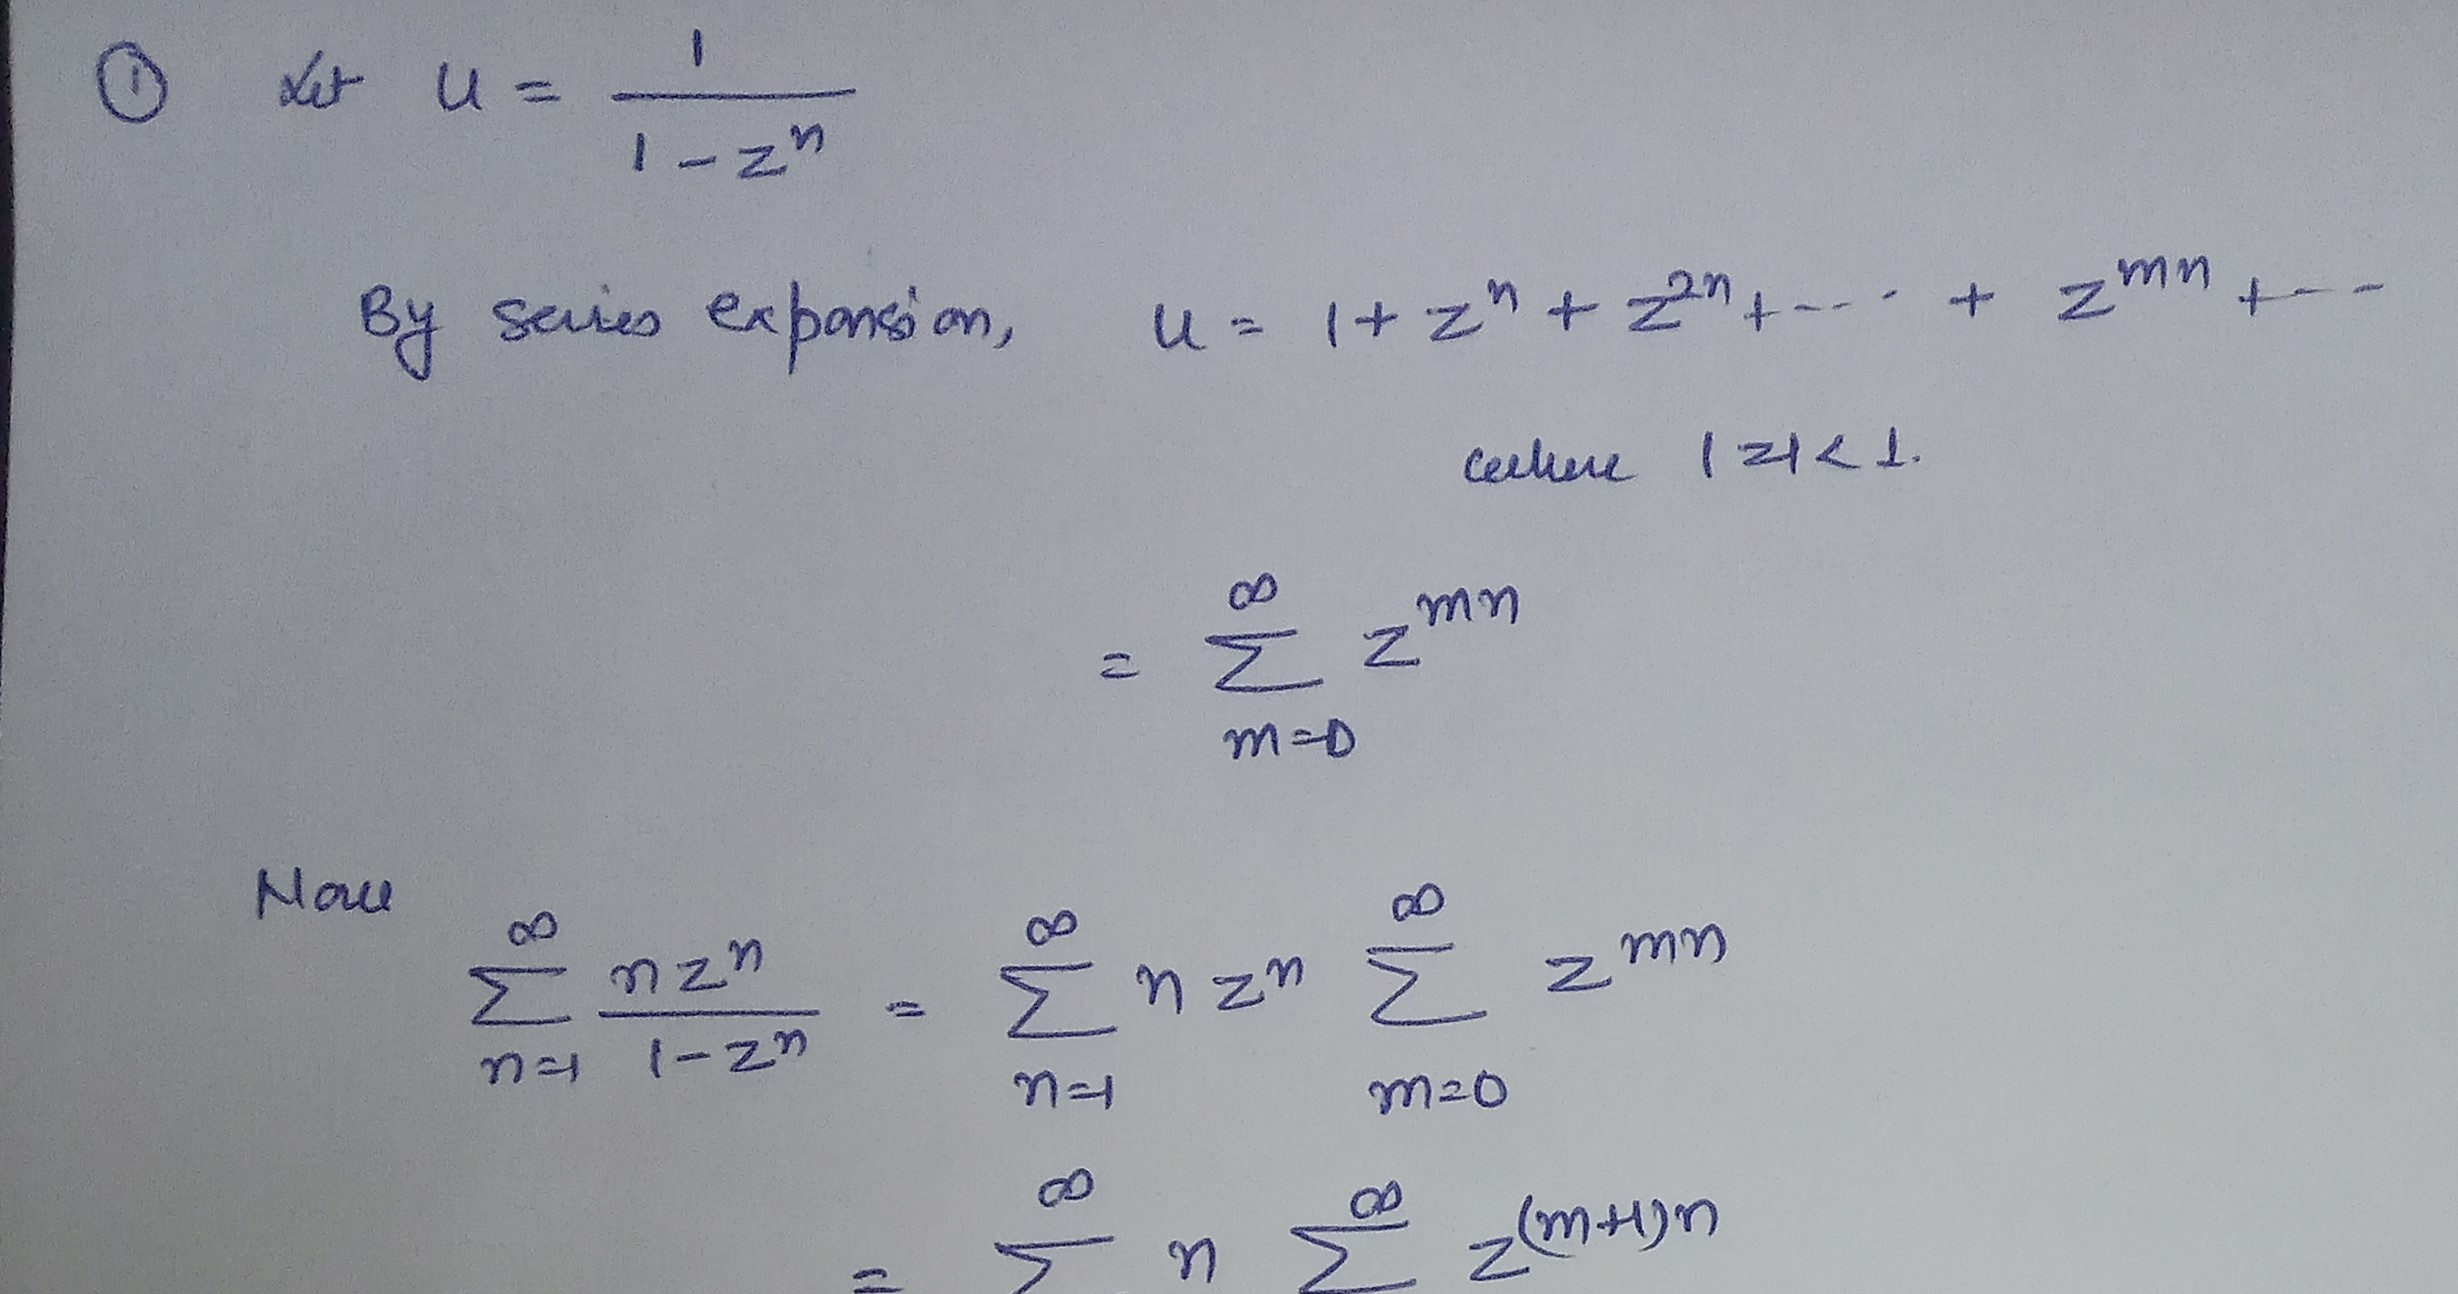 ① Let u = 1/(1 - zⁿ)
By series expansion, u = 1 + zⁿ + z²ⁿ + --- + zᵐⁿ + ---
where |z| < 1.
= ∑_{m=0}^{∞} zᵐⁿ
Now
∑_{n=1}^{∞} nzⁿ/(1 - zⁿ) = ∑_{n=1}^{∞} n zⁿ ∑_{m=0}^{∞} zᵐⁿ
= ∑^{∞} n ∑^{∞} z^{(m+1)n}